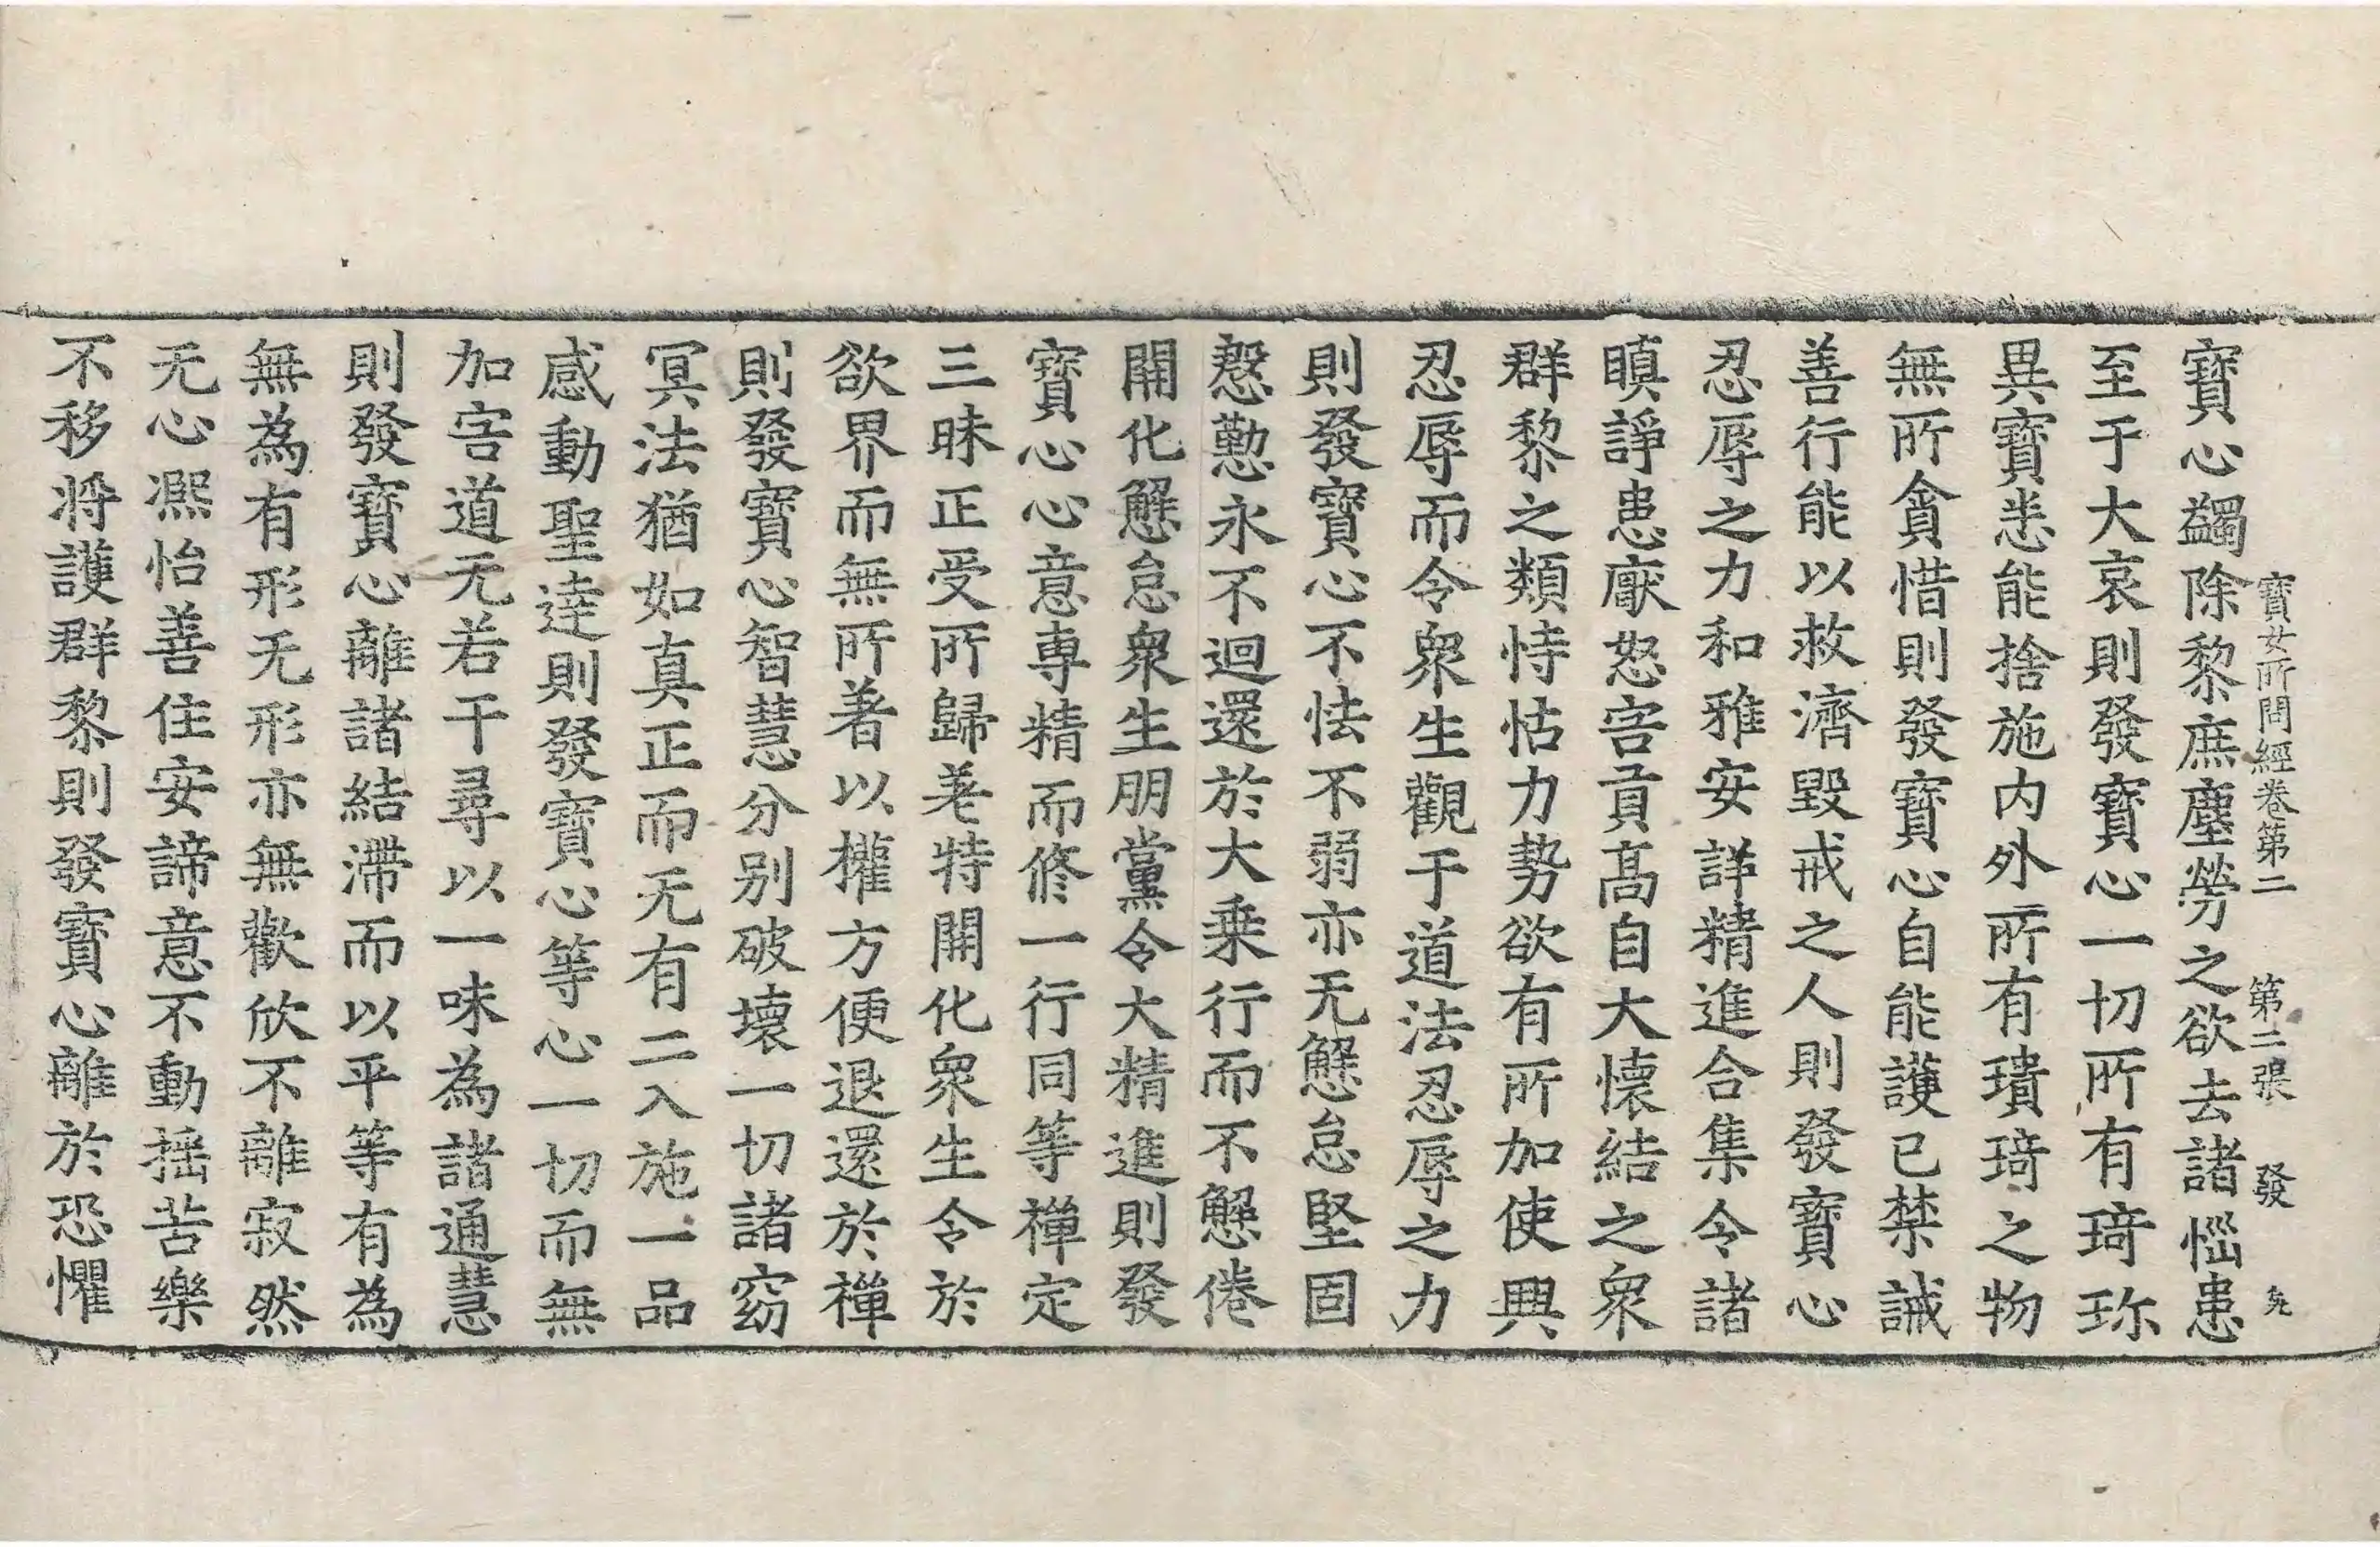 寶女所問經卷第二　第二張　發
寶心蠲除黎庶塵勞之欲去諸惱患
至于大哀則發寶心一切所有琦珎
異寶悉能捨施内外所有瓌琦之物
無所貪惜則發寶心自能護已禁誡
善行能以救濟毀戒之人則發寶心
忍辱之力和雅安詳精進合集令諸
瞋諍恚厭怒害貢髙自大懷結之衆
群黎之類恃怙力勢欲有所加使興
忍辱而令衆生觀于道法忍辱之力
則發寶心不怯不弱亦无懈怠堅固
慇懃永不迴還於大乗行而不懈倦
開化懈怠衆生朋黨令大精進則發
寶心心意専精而修一行同等禪定
三昧正受所歸差特開化衆生令於
欲界而無所著以權方便退還於禪
則發寶心智慧分别破壞一切諸窈
冥法猶如真正而无有二入施一品
感動聖達則發寶心等心一切而無
加害道无若干尋以一味為諸通慧
則發寶心離諸結滯而以平等有為
無為有形无形亦無歡欣不離寂然
无心凞怡善住安諦意不動揺苦樂
不移将護群黎則發寶心離於恐懼